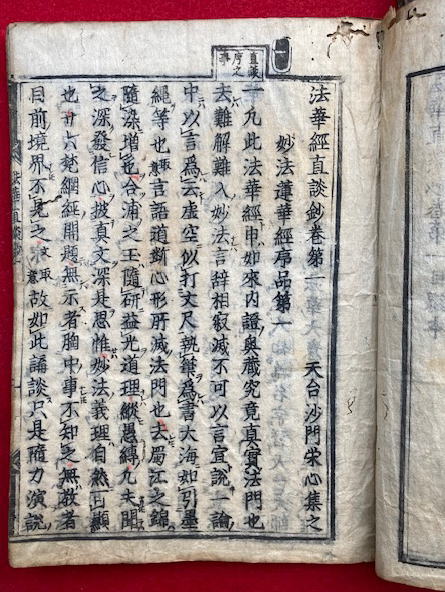 直談
序之
事
法華經直談鈔卷第一 天台沙門栄心集之
妙法蓮華經序品第一
一凡此法華經申如來内證奥藏究竟真實法門也
去難解難入妙法言辞相寂滅不可以言宣說一論
中以言爲云虚空似打文尺執簧爲書大海如引墨
縄等也取意言語道断心形肝滅法門也去蜀江之錦
隨染増色合浦之玉隨研益光道理縦愚縛凡夫聞
之深發信心披真文深是思惟妙法義理自然可顯
也廿六梵網經開題無示者胸中事不知之無教者
目前境界不見之文取意故如此誦談只是隨力演說